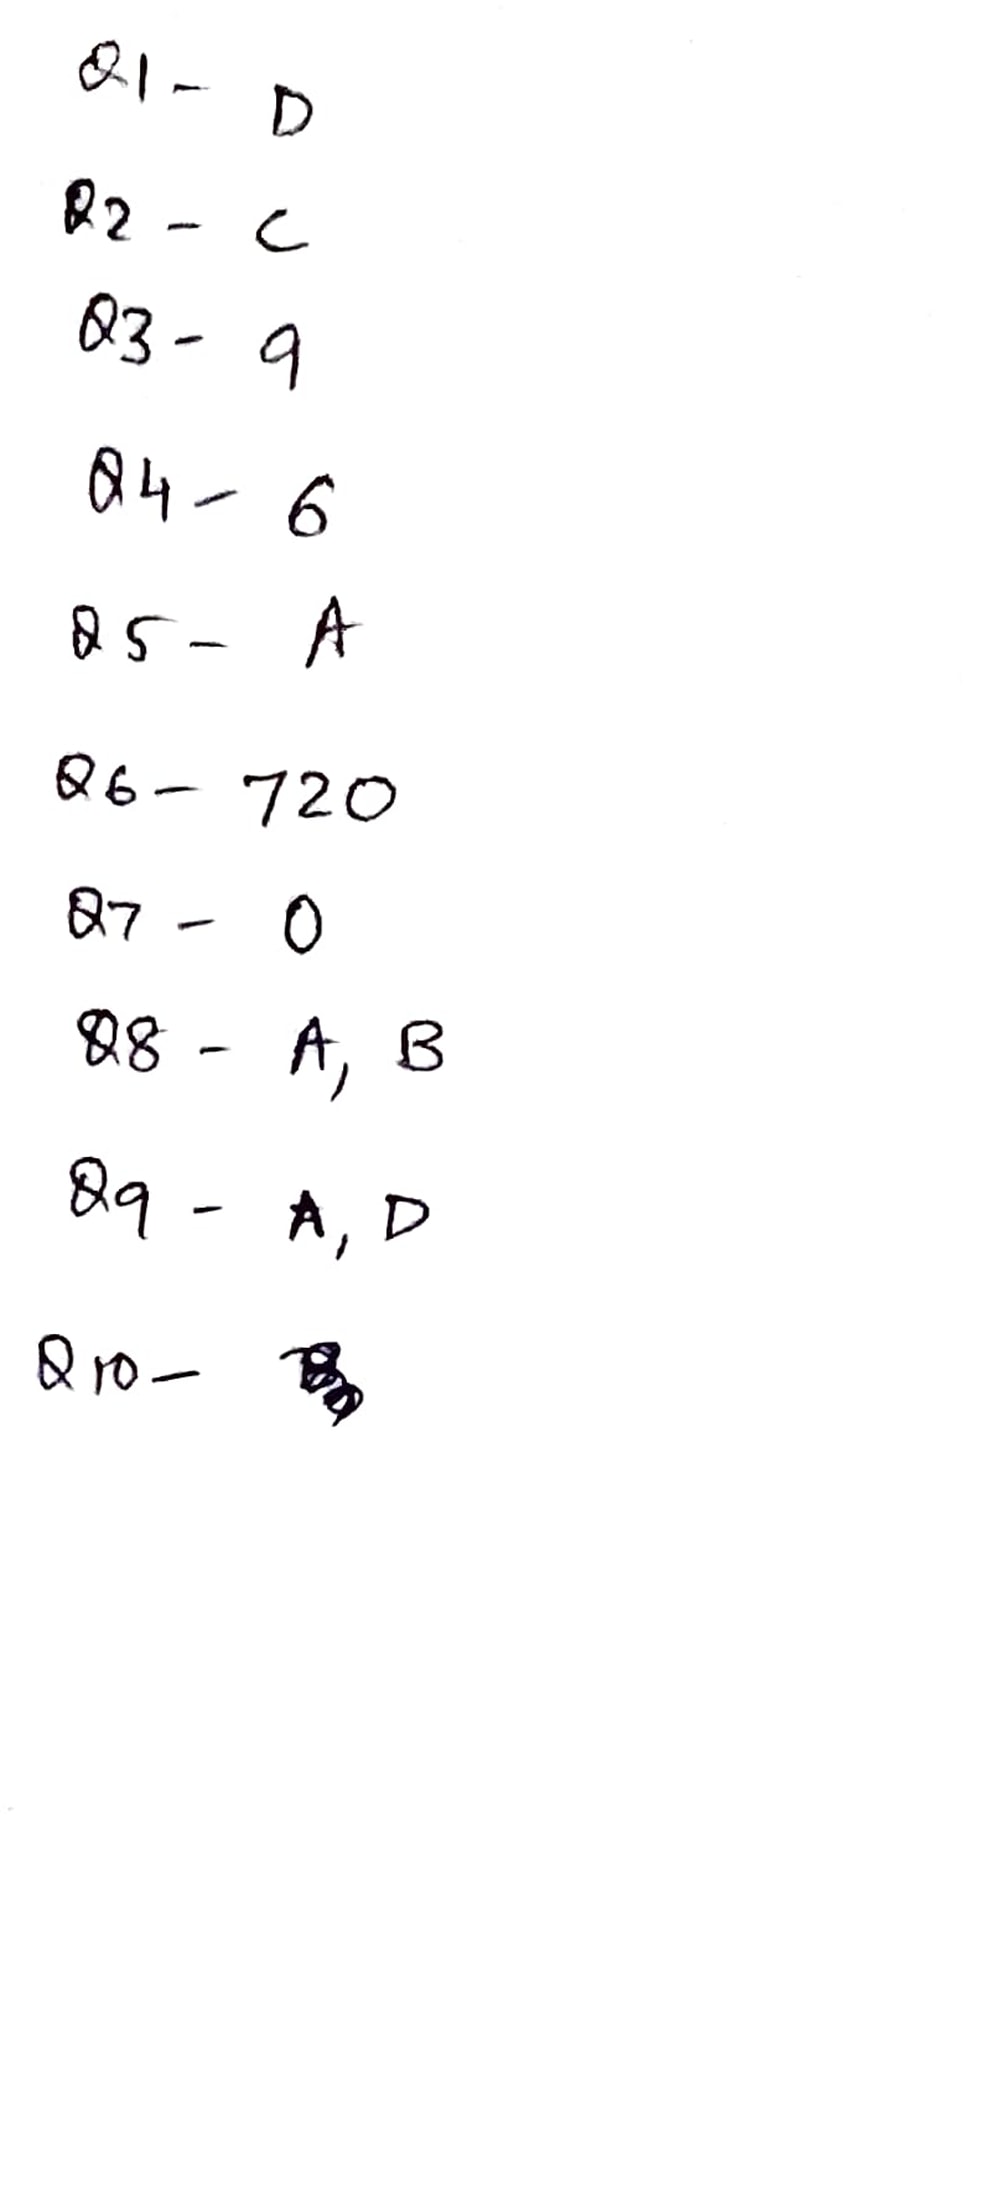 Q1 - D
Q2 - C
Q3 - 9
Q4 - 6
Q5 - A
Q6 - 720
Q7 - 0
Q8 - A, B
Q9 - A, D
Q10 -